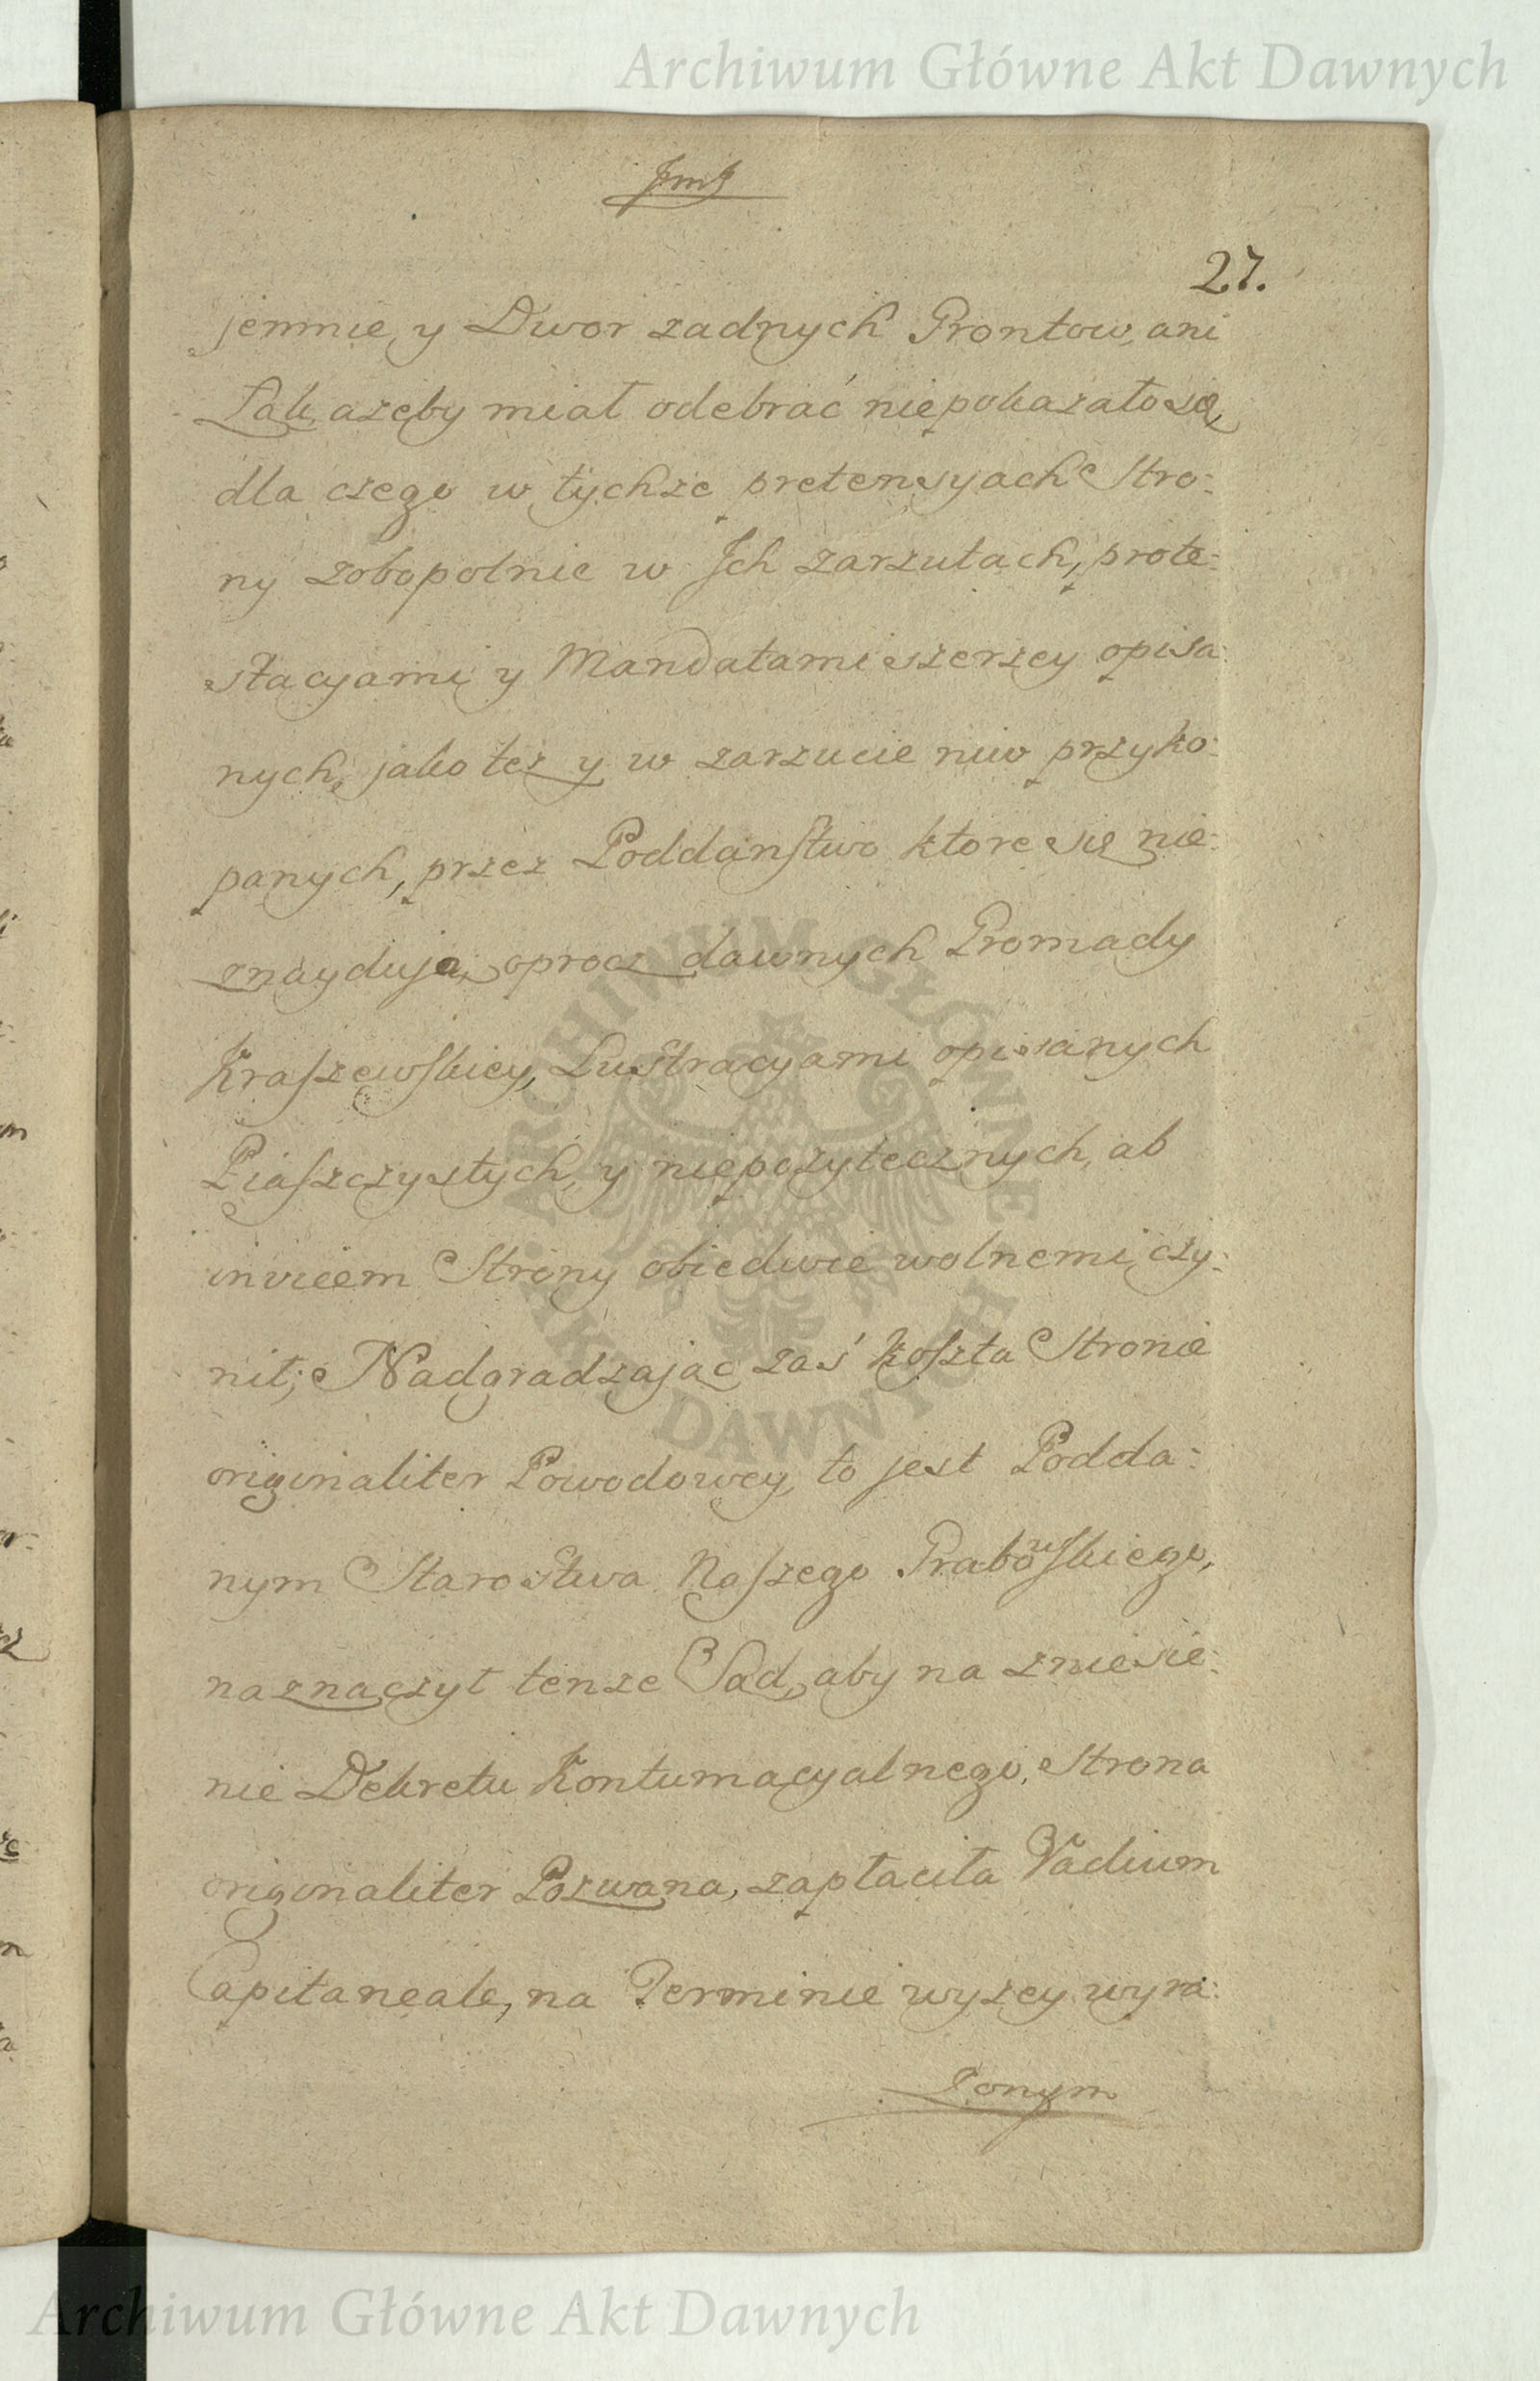 Archiwum Główne Akt Dawnych
27.
jemnie, y Dwor zadnych Grontow, ani
Łąk, azeby miał odebrać niepokazało się,
dla czego w tychze pretensyach Stro-
ny zobopolnie w Ich zarzutach, prote-
stacyami y Mandatami szerzey opisa-
nych, jako tez y w zarzucie niw przyko-
panych, przez Poddanstwo ktore się nie-
znaydują, oprocz dawnych Gromady
Kraszewskiey, Lustracyami opisanych
Piaszczystych, y niepozytecznych, ab
inviem Strony obiedwie wolnemi czy-
nił; Nadgradzaiąc zaś koszta Stronie
originaliter Powodowey, to jest Podda-
nym Starostwa Naszego Grabowskiego,
naznaczył tenze Sąd, aby na zniesie-
nie Dekretu Kontumacyalnego, Strona
originaliter Pozwana, zapłaciła Vadium
Capitaneale, na Terminie wyzey wyra-
żonym
ARCHIWUM GŁÓWNE AKT DAWNYCH
Archiwum Główne Akt Dawnych